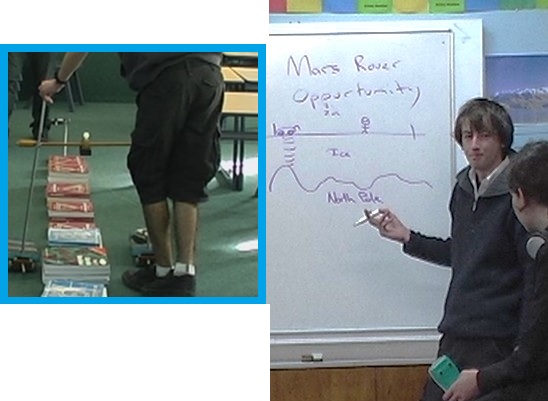 Mars Rover
Oppurtunity
Ice
North Pole